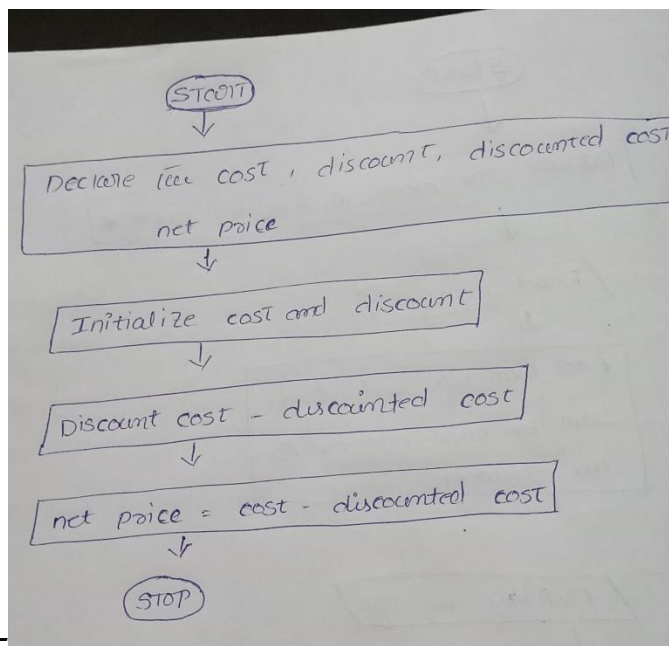 START
Declare cost, discount, discounted cost
net price
Initialize cost and discount
Discount cost - discounted cost
net price = cost - discounted cost
STOP